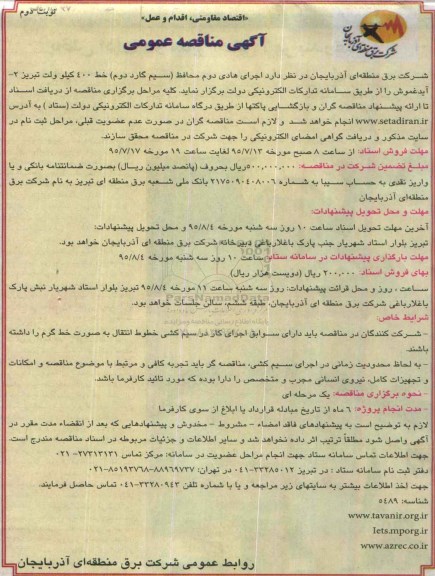 نوبت دوم
«اقتصاد مقاومتی، اقدام و عمل»
آگهی مناقصه عمومی
شرکت برق منطقه‌ای آذربایجان
شرکت برق منطقه‌ای آذربایجان در نظر دارد اجرای هادی دوم محافظ (سیم گارد دوم) خط ۴۰۰ کیلو ولت تبریز ۲-
آیدغموش را از طریق سامانه تدارکات الکترونیکی دولت برگزار نماید. کلیه مراحل برگزاری مناقصه از دریافت اسناد
تا ارائه پیشنهاد مناقصه گران و بازگشایی پاکتها از طریق درگاه سامانه تدارکات الکترونیکی دولت (ستاد) به آدرس
www.setadiran.ir انجام خواهد شد و لازم است مناقصه گران در صورت عدم عضویت قبلی، مراحل ثبت نام در
سایت مذکور و دریافت گواهی امضای الکترونیکی را جهت شرکت در مناقصه محقق سازند.
مهلت فروش اسناد: از ساعت ۸ صبح مورخه ۹۵/۷/۱۳ لغایت ساعت ۱۹ مورخه ۹۵/۷/۱۷
مبلغ تضمین شرکت در مناقصه: ۵۰۰,۰۰۰,۰۰۰ریال بحروف (پانصد میلیون ریال) بصورت ضمانتنامه بانکی و یا
واریز نقدی به حساب سیبا به شماره ۲۱۷۵۰۹۰۴۰۸۰۰۶ بانک ملی شعبه برق منطقه ای تبریز به نام شرکت برق
منطقه‌ای آذربایجان
مهلت و محل تحویل پیشنهادات:
آخرین مهلت تحویل اسناد ساعت ۱۰ روز سه شنبه مورخه ۹۵/۸/۴ و محل تحویل پیشنهادات:
تبریز بلوار استاد شهریار جنب پارک باغلارباغی دبیرخانه شرکت برق منطقه ای آذربایجان خواهد بود.
مهلت بارگذاری پیشنهادات در سامانه ستاد: ساعت ۱۰ روز سه شنبه مورخه ۹۵/۸/۴
بهای فروش اسناد: ۲۰۰,۰۰۰ ریال (دویست هزار ریال)
ساعت ، روز و محل قرائت پیشنهادات: روز سه شنبه ساعت ۱۱ مورخه ۹۵/۸/۴ تبریز بلوار استاد شهریار نبش پارک
باغلارباغی شرکت برق منطقه ای آذربایجان، طبقه ششم، سالن جلسات خواهد بود.
شرایط خاص:
- شرکت کنندگان در مناقصه باید دارای سوابق اجرای کار در سیم کشی خطوط انتقال به صورت خط گرم را داشته
باشند.
- به لحاظ محدودیت زمانی در اجرای سیم کشی، مناقصه گر باید تجربه کافی و مرتبط با موضوع مناقصه و امکانات
و تجهیزات کامل، نیروی انسانی مجرب و متخصص را دارا بوده که مورد تائید کارفرما باشد.
- نحوه برگزاری مناقصه: یک مرحله ای
- مدت انجام پروژه: ۶ ماه از تاریخ مبادله قرارداد یا ابلاغ از سوی کارفرما
لازم به توضیح است به پیشنهادهای فاقد امضاء - مشروط - مخدوش و پیشنهادهایی که بعد از انقضاء مدت مقرر در
آگهی واصل شود مطلقاً ترتیب اثر داده نخواهد شد و سایر اطلاعات و جزئیات مربوطه در اسناد مناقصه مندرج است.
جهت اطلاعات تماس سامانه ستاد جهت انجام مراحل عضویت در سامانه: مرکز تماس ۲۷۳۱۳۱۳۱-۰۲۱
دفتر ثبت نام سامانه ستاد : در تبریز ۳۳۲۸۵۰۱۲-۰۴۱ در تهران: ۸۸۹۶۹۷۳۷-۸۵۱۹۳۷۶۸-۰۲۱
جهت اخذ اطلاعات بیشتر به سایتهای زیر مراجعه و یا با شماره تلفن ۳۳۲۸۰۹۴۳-۰۴۱ تماس حاصل فرمایند.
شناسه: ۵۴۸۹
www.tavanir.org.ir
Iets.mporg.ir
www.azrec.co.ir
روابط عمومی شرکت برق منطقه‌ای آذربایجان